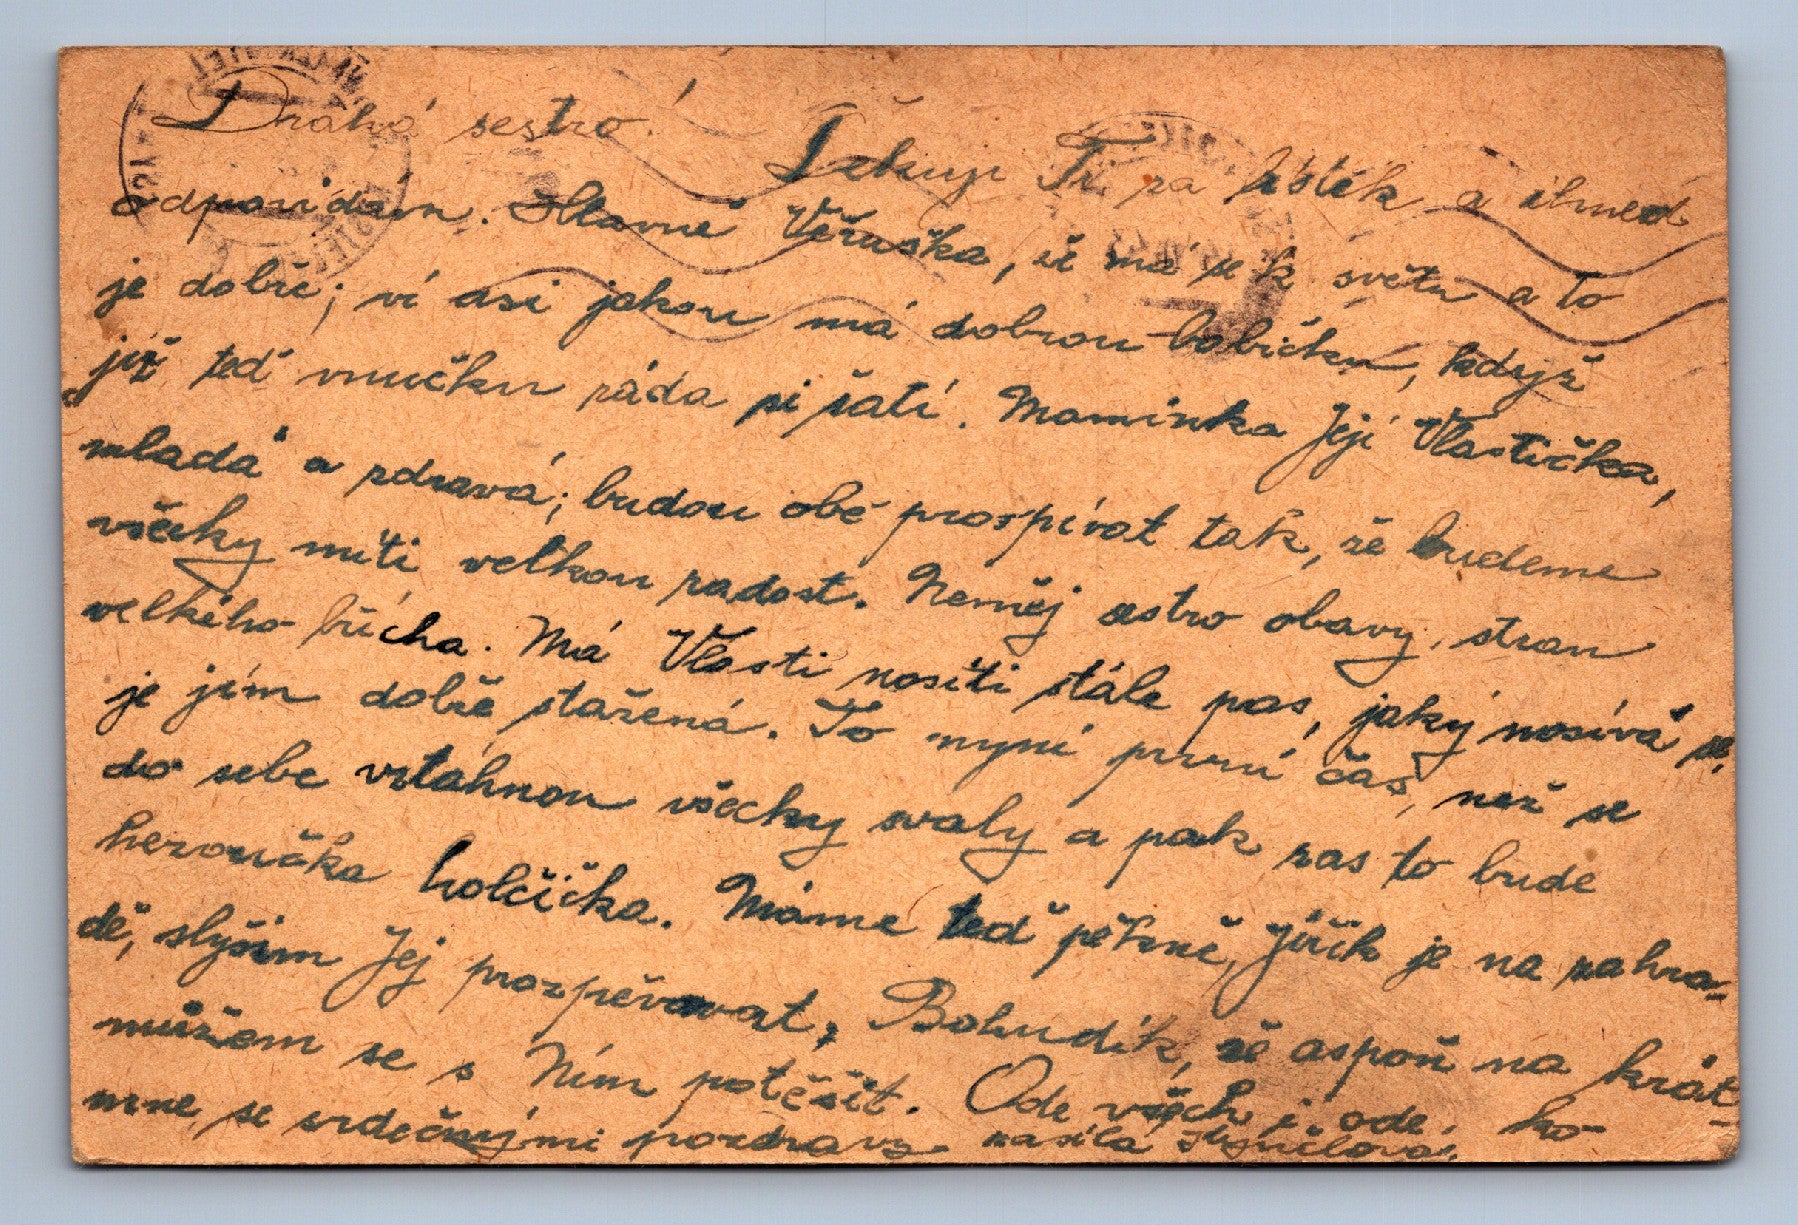 Drahá sestro!
Děkuji Ti za lístek a ihned
odpovídám. Hlavně Věruška, že má se k světu a to
je dobře; ví asi jakou má dobrou babičku, když
již teď vnučku ráda si šatí. Maminka Její Vlastička,
mladá a zdravá; budou obě prospívat tak, že budeme
všecky míti velkou radost. Neměj sestro obavy, stran
velkého břícha. Má Vlasti nositi stále pas, jaký nosívá se,
je jím dobře stažená. To nyní první čas, než se
do sebe vztáhnou všecky svaly a pak zas to bude
holčička. Máme teď pěkně, Jiřík je na zahra-
dě, slyším Jej prozpěvovat, Bohudík, že aspoň na krát-
ko
můžem se s Ním potěšit. Ode všech i ode
mne, se srdečnými pozdravy zasílá